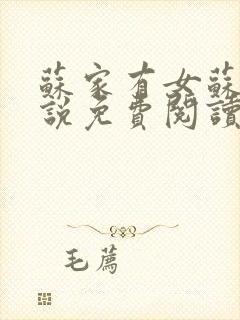 蘇家有女蘇
說免費閱讀
毛薦